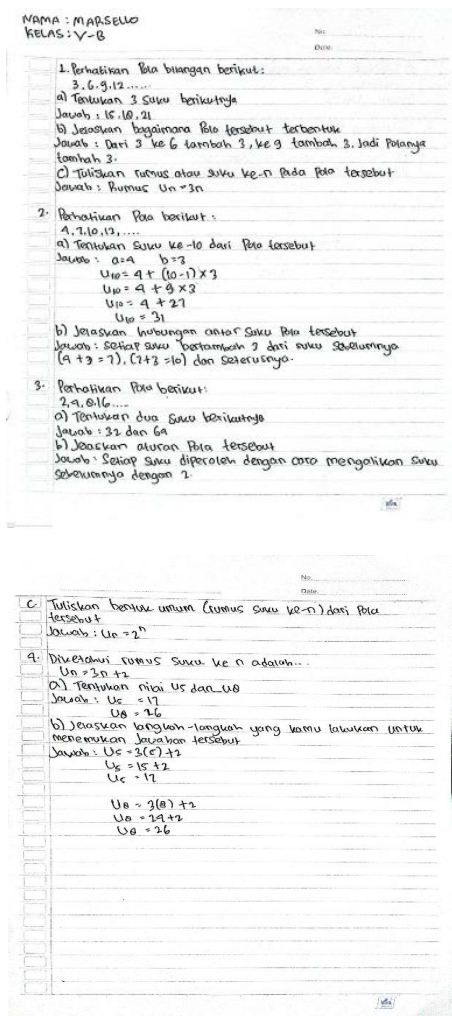 NAMA : MARSELLO
KELAS : V-B
No:
Date:
1. Perhatikan Pola bilangan berikut:
3, 6, 9, 12 .....
a) Tentukan 3 suku berikutnya
Jawab : 15, 18, 21
b) Jelaskan bagaimana Pola tersebut terbentuk
Jawab : Dari 3 ke 6 tambah 3, ke 9 tambah 3. Jadi Polanya
tambah 3.
C) Tuliskan rumus atau suku ke-n Pada Pola tersebut
Jawab : Rumus Un = 3n
2. Perhatikan Pola berikut :
4, 7, 10, 13, ....
a) Tentukan Suku ke-10 dari Pola tersebut
Jawab : a=4 b=3
U10 = 4 + (10-1) x 3
U10 = 4 + 9 x 3
U10 = 4 + 27
U10 = 31
b) Jelaskan hubungan antar Suku Pola tersebut
Jawab : Setiap suku bertambah 3 dari suku Sebelumnya
(4+3 = 7), (7+3 = 10) dan seterusnya.
3. Perhatikan Pola berikut:
2, 4, 8, 16 ....
a) Tentukan dua Suku berikutnya
Jawab : 32 dan 64
b) Jelaskan aturan Pola tersebut
Jawab : Setiap Suku diperoleh dengan cara mengalikan Suku
Sebelumnya dengan 2.
No.
Date.
C. Tuliskan bentuk umum (rumus suku ke-n) dari Pola
tersebut
Jawab : Un = 2ⁿ
4. Diketahui rumus suku ke n adalah...
Un = 3n + 2
a) Tentukan nilai U5 dan U8
Jawab : U5 = 17
U8 = 26
b) Jelaskan langkah-langkah yang kamu lakukan untuk
menemukan Jawaban tersebut
Jawab : U5 = 3(5) + 2
U5 = 15 + 2
U5 = 17
U8 = 3(8) + 2
U8 = 24 + 2
U8 = 26